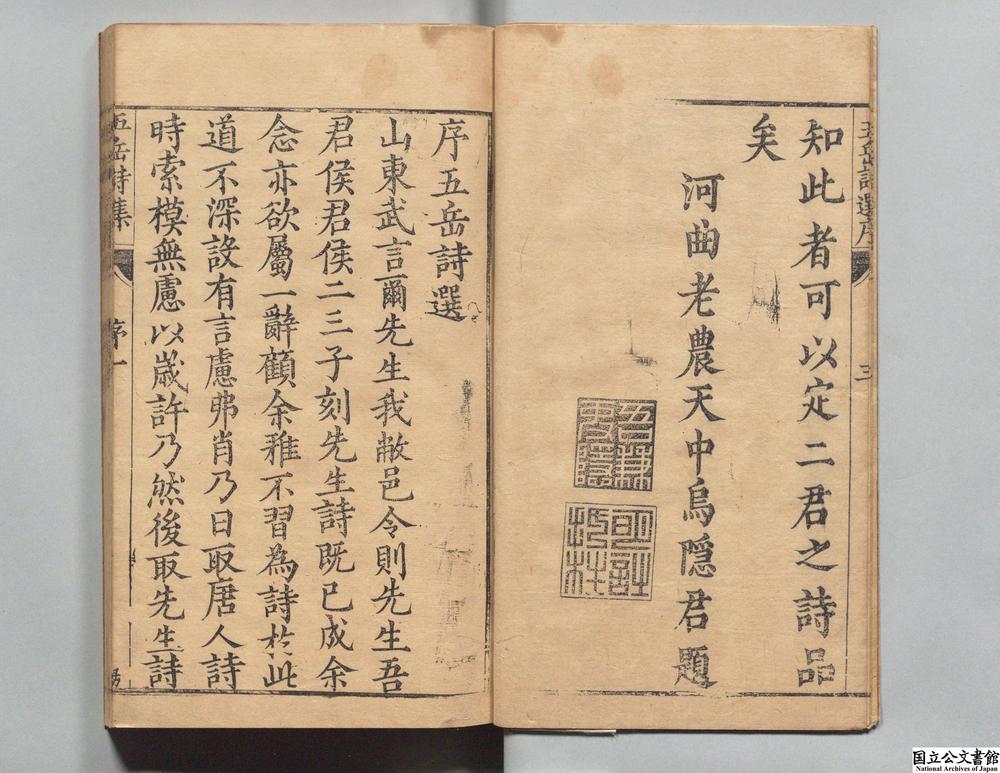 五岳詩選序
三
知此者可以定二君之詩品
矣
河曲老農天中烏隱君題
序五岳詩選
山東武言爾先生我敝邑令則先生吾
君侯君侯二三子刻先生詩既已成余
念亦欲屬一辭顧余雅不習為詩於此
道不深設有言慮弗肖乃日取唐人詩
時索模無慮以歲許乃然後取先生詩
五岳詩集
序一
国立公文書館
National Archives of Japan